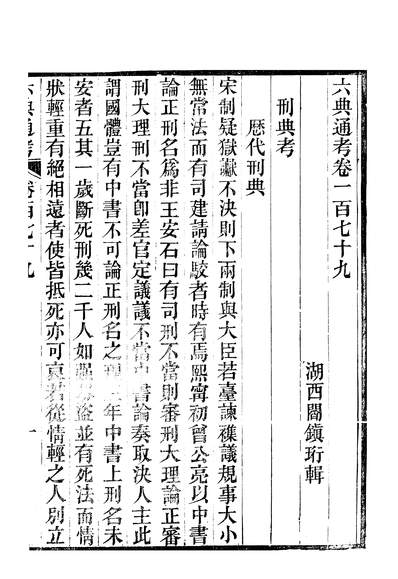 六典通考卷一百七十九
湖西閻鎮珩輯
刑典考
歷代刑典
宋制疑獄讞不決則下兩制與大臣若臺諫襍議規事大小
無常法而有司建請論駮者時有焉熙甯初曾公亮以中書
論正刑名爲非王安石曰有司刑不當則審刑大理論正審
刑大理刑不當卽差官定議議不當中書論奏取決人主此
謂國體豈有中書不可論正刑名之理三年中書上刑名未
安者五其一歲斷死刑幾二千人如强劫盜並有死法而情
狀輕重有絕相遠者使皆抵死亦可哀若從情輕之人別立
六典通考
卷百七十九
一